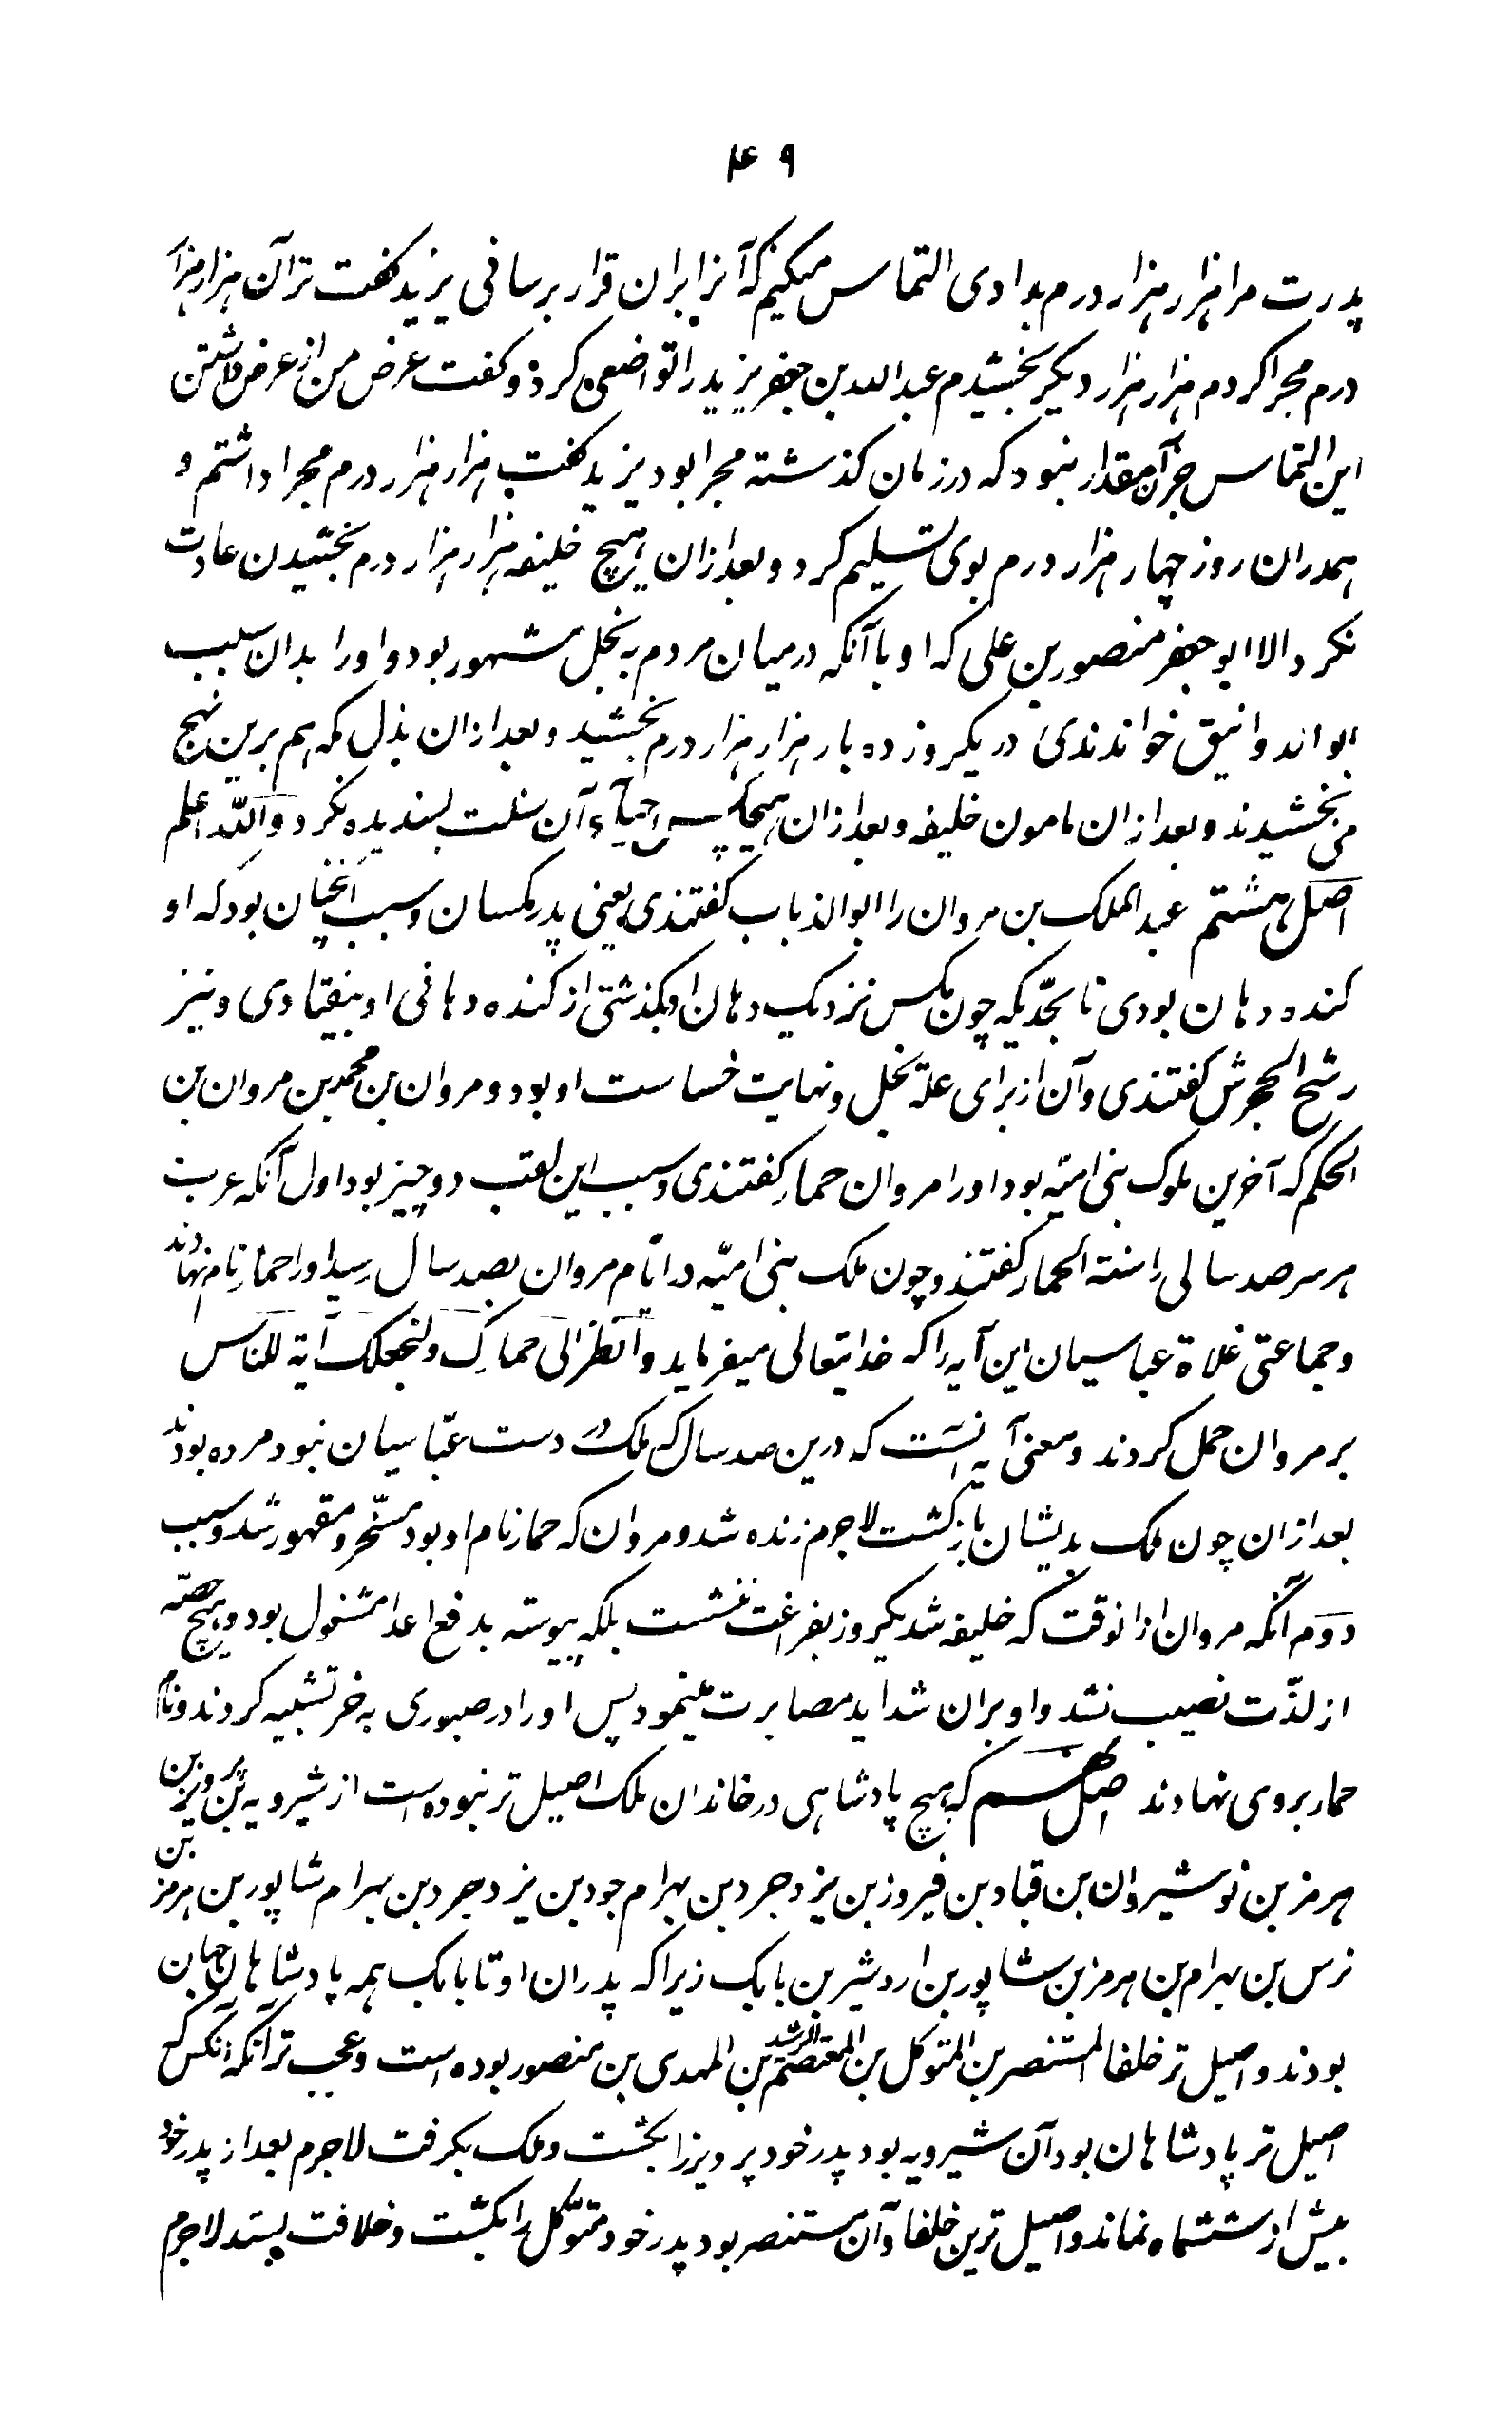 ۴۹
پدرت مرا هزار هزار درم بدادی التماس میکنم که آنرا بران قرار برسانی یزید کفت ترا آن هزار هزار
درم مجرا کردم هزار هزار دیکر بخشیدم عبدالله بن جعفر یزید را تواضعی کرد و کفت غرض من از عرض داشتن
این التماس جز آن مقدار نبود که در زمان کذشته مجرا بود یزید کفت هزار هزار درم مجرا داشتم و
همدران روز چهار هزار درم بوی تسلیم کرد و بعد ازان هیچ خلیفه هزار هزار درم بخشیدن عادت
نکرد الا ابو جعفر منصور بن علی که او با آنکه درمیان مردم به بخل مشهور بود و اورا بدان سبب
ابو الدوانیق خواندندی در یکروز ده بار هزار هزار درم بخشید و بعد ازان بذل که هم برین نهج
می بخشیدند و بعد ازان مامون خلیفه و بعد ازان هیچکس احیآء آن سنت پسندیده نکرد والله اعلم
اصل هشتم عبد الملک بن مروان را ابو الذباب کفتندی یعنی پدر مکسان و سبب آنچنان بود که او
کنده دهان بودی تا بحدّیکه چون مکس نزدیک دهان او بکذشتی از کنده دهانی او بیفتادی و نیز
رشح الحجرش کفتندی و آن از برای علة بخل و نهایت خساست او بود و مروان بن محمد بن مروان بن
الحکم که آخرین ملوک بنی امیّه بود اورا مروان حمار کفتندی و سبب این لقب دو چیز بود اول آنکه عرب
هر سر صد سالی را سنة الحمار کفتند و چون ملک بنی امیّه در ایّام مروان بصد سال رسید اورا حمار نام نهادند
و جماعتی غلاة عباسیان این آیه را که خدایتعالی میفرماید وانظر الی حمارک ولنجعلک آیة للناس
بر مروان حمل کردند و معنی آیه اینست که درین صد سال که ملک در دست عبّاسیان نبود مرده بودند
بعد ازان چون ملک بدیشان باز کشت لاجرم زنده شد و مروان که حمار نام او بود مسخّر و مقهور شد و سبب
دوم آنکه مروان ازانوقت که خلیفه شد یکروز بفراغت ننشست بلکه پیوسته بدفع اعدا مشغول بود و هیچ حصّه
از لذّت نصیب نشد و او بران شداید مصابرت مینمود پس اورا در صبوری به خر تشبیه کردند و نام
حمار بروی نهادند اصل نهم که هیچ پادشاهی در خاندان ملک اصیل تر نبوده است از شیرویه بن پرویز بن
هرمز بن نوشیروان بن قباد بن فیروز بن یزدجرد بن بهرام جود بن یزدجرد بن بهرام شاپور بن هرمز بن
نرس بن بهرام بن هرمز بن شاپور بن اردشیر بن بابک زیرا که پدران او تا بابک همه پادشاهان جهان
بودند و اصیل تر خلفا المستنصر بن المتوکل بن المعتصم بن الرشید بن المهدی بن منصور بوده است و عجب تر آنکه آنکس که
اصیل تر پادشاهان بود آن شیرویه بود پدر خود پرویز را بکشت و ملک بکرفت لاجرم بعد از پدر خود
بیش از ششماه نماند و اصیل ترین خلفا و آن مستنصر بود پدر خود متوکّل را بکشت و خلافت بستد لاجرم